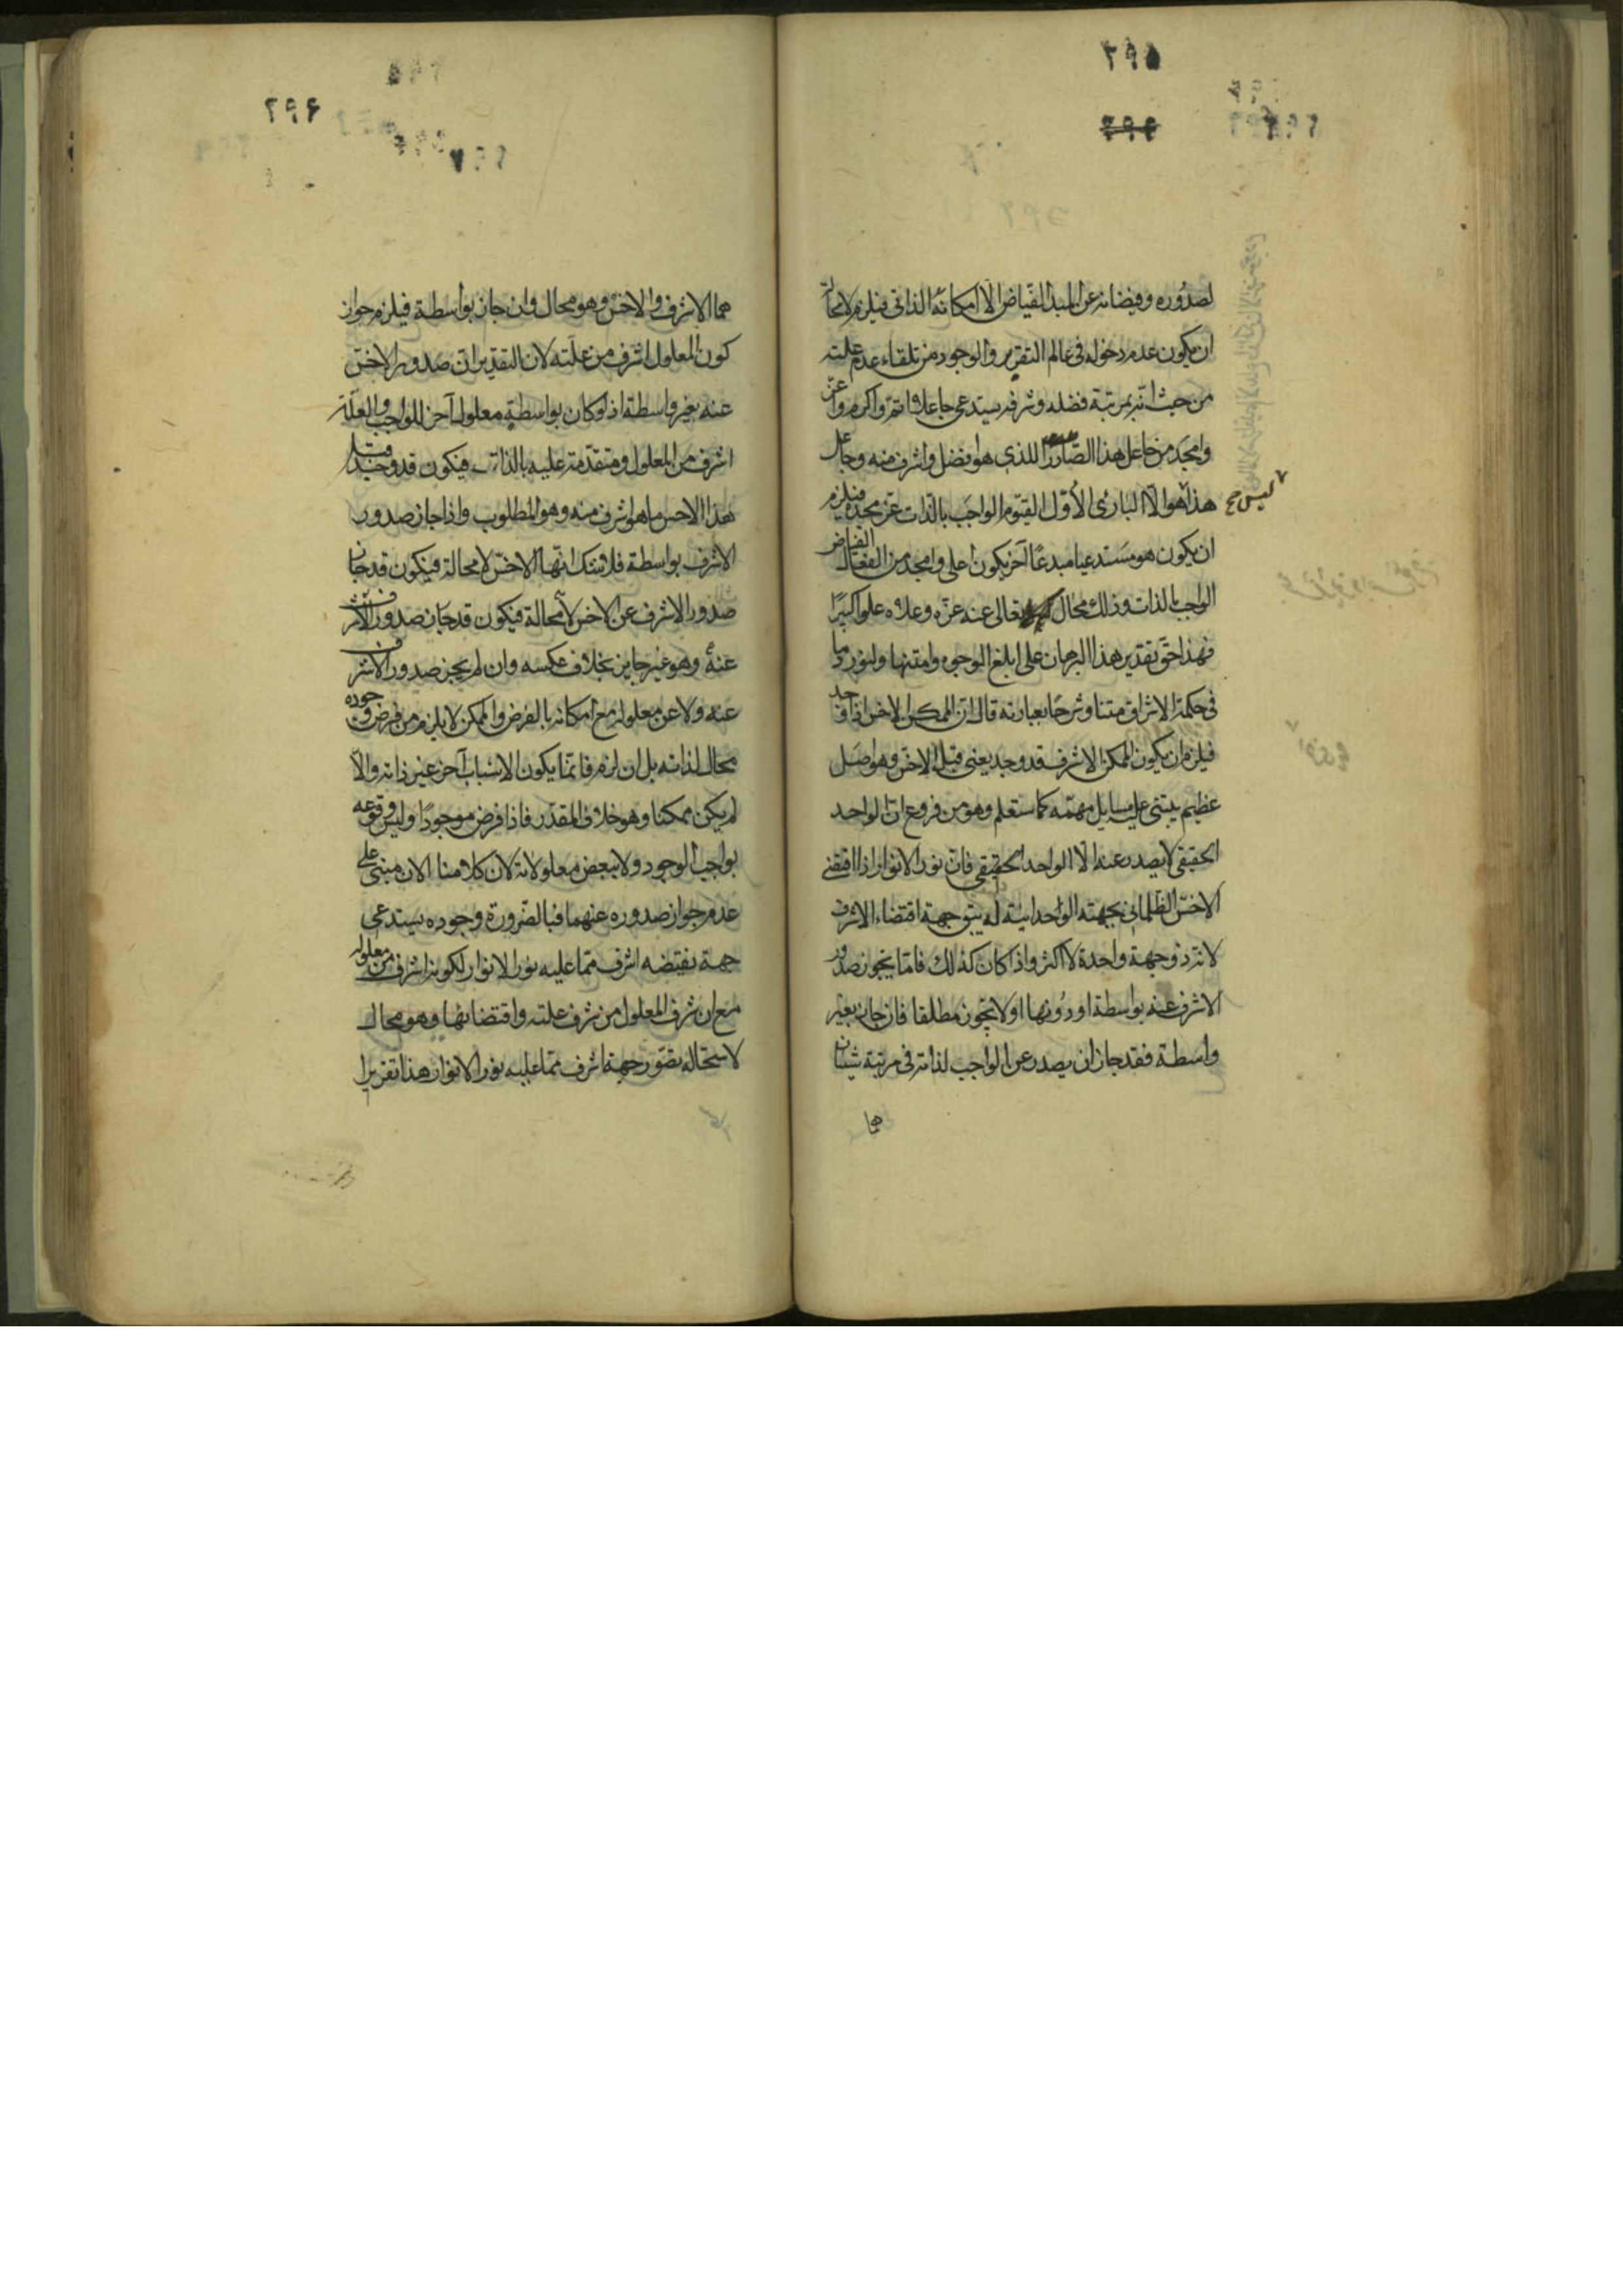 لصدوره وفيضانه عن المبدأ الفياض الا امكانه الذاتى فيلزم لا محالة
ان يكون عدم دخوله فى عالم التقرير والوجود من تلقاء عدم علته
من حيث انه بمرتبة فضله وشرفه يستدعى جاعلا اتم واكرم واعز
وامجد من جاعل هذا الصادر الذى هو افضل واشرف منه وجاعل
هذا هو الا البارئ الأول القيوم الواجب بالذات عز مجده فيلزم
ليس
ان يكون هو مستدعيا مبدعا آخر يكون اعلى وامجد من الفعال الفياض
الواجب بالذات وذلك محال تعالى عنه عزه وعلاه علوا كبيرا
فهذا حق تقدير هذا البرهان على ابلغ الوجوه وامتنها ولنورد ما
فى حكمة الاشراق متنا وشرحا بعبارته قال ان الممكن الاخس اذا وجد
فيلزم ان يكون الممكن الاشرف قد وجد يعنى قبل الاخس وهو اصل
عظيم يبتنى عليه مسايل مهمه كما ستعلم وهو من فروع ان الواحد
الحقيقى لا يصدر عنه الا الواحد الحقيقى فان نور الانوار اذا اقتضى
الاخس الظلمانى بجهته الواحدانية لم يبق جهة اقتضاء الاشرف
لانه ذو جهة واحدة لا اكثر واذا كان كذلك فاما يجوز صدور
الاشرف عنه بواسطة او دونها او لا يجوز مطلقا فان جاز بغير
واسطة فقد جاز ان يصدر عن الواجب لذاته فى مرتبة شيئان
هما
هما الاشرف والاخس وهو محال وان جاز بواسطة فيلزم جواز
كون المعلول اشرف من علته لان التقدير ان صدور الاخس
عنه بغير واسطة اذ لو كان بواسطة معلول آخر للواجب والعلة
اشرف من المعلول ومتقدمة عليه بالذات فيكون قد وجد قبل
هذا الاخس ما هو اشرف منه وهو المطلوب واذا جاز صدور
الاشرف بواسطة فلا شك انها الاخس لا محالة فيكون قد جاز
صدور الاشرف عن الاخس لا محالة فيكون قد جاز صدور الاشرف
عنه وهو غير جايز بخلاف عكسه وان لم يجز صدور الاشرف
عنه ولا عن معلوله مع امكانه بالفرض والممكن لا يلزم من فرض وجوده
محال لذاته بل ان لزم فانما يكون لاسباب آخر غير ذاته والا
لم يكن ممكنا وهو خلاف المقدر فاذا فرض موجودا وليس وقوعه
بواجب الوجود ولا ببعض معلولاته لان كلامنا الان مبنى على
عدم جواز صدوره عنهما فبالضرورة وجوده يستدعى
جهة تقتضيه اشرف مما عليه نور الانوار لكونه اشرف من معلوله
مع ان شرف المعلول من شرف علته واقتضائها وهو محال
لاستحاله تصور جهة اشرف مما عليه نور الانوار هذا تقرير